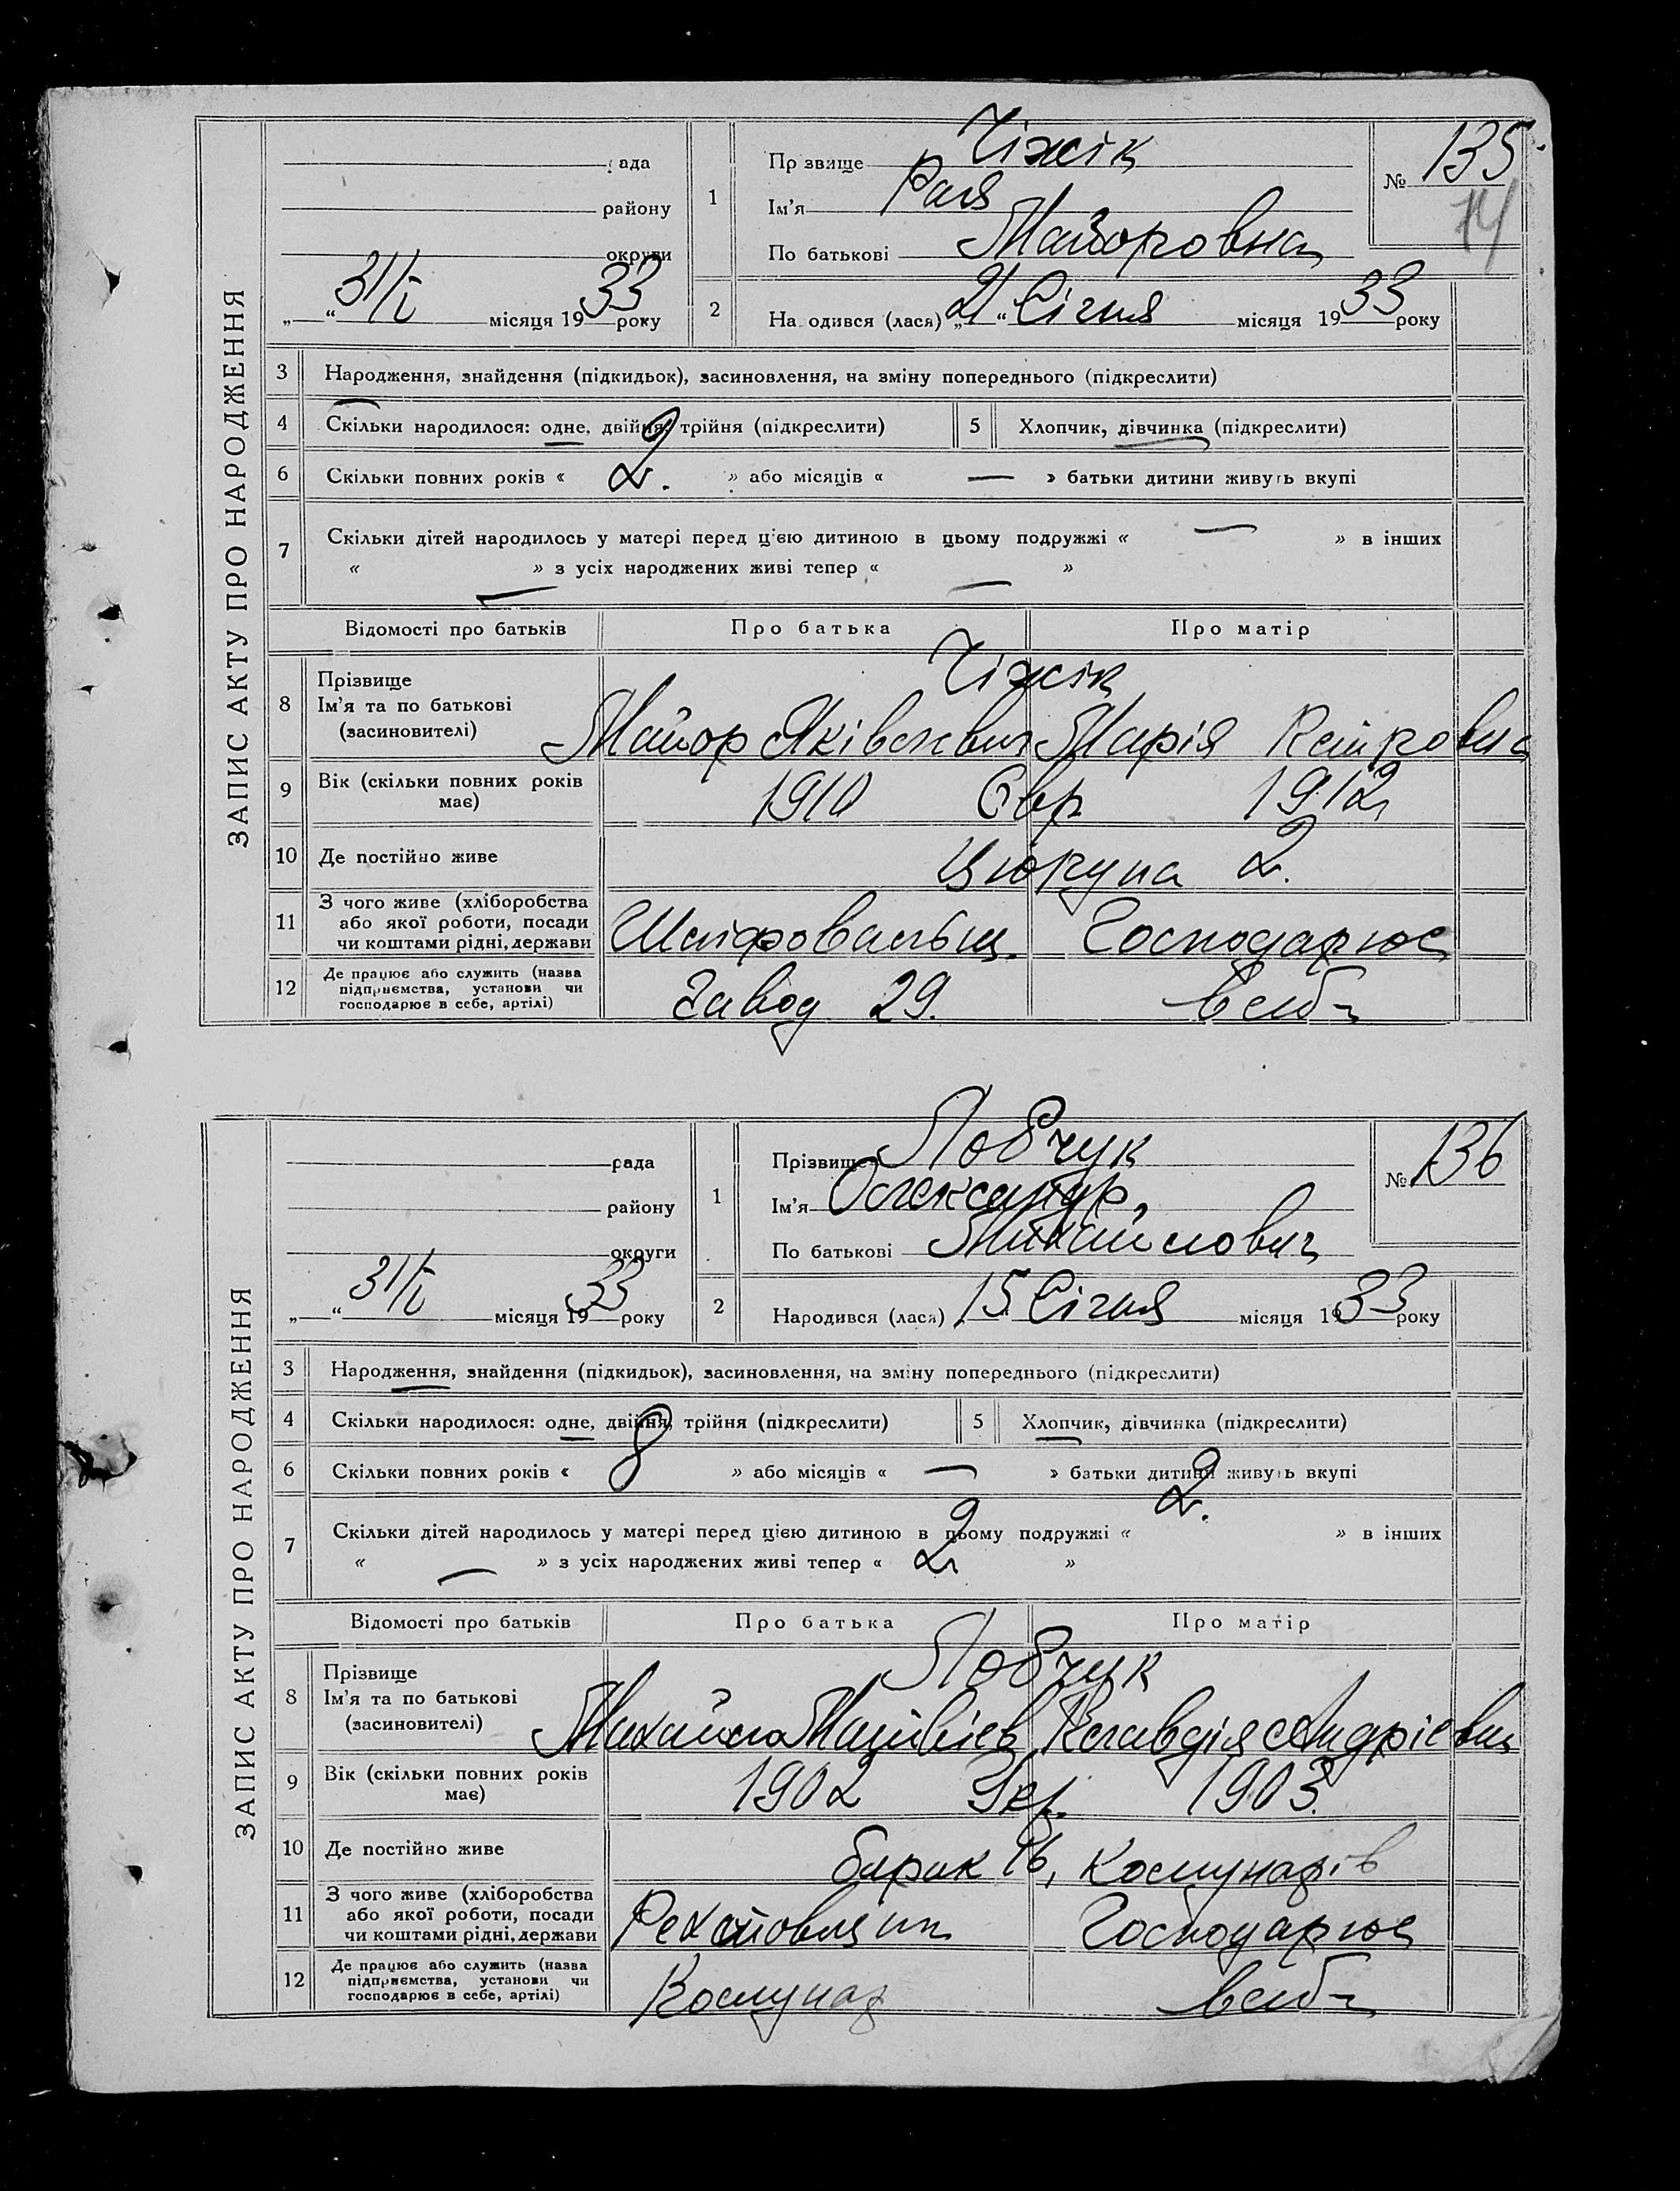 ЗАПИС АКТУ ПРО НАРОДЖЕННЯ
ада
району
округи
„ “ 31/I місяця 19 33 року
1 Пр звище Чіжік
Ім'я Рая
По батькові Майоровна
№ 135
14
2 На одився (лася) „21“ Січня місяця 1933 року
3 Народження, знайдення (підкидьок), засиновлення, на зміну попереднього (підкреслити)
4 Скільки народилося: одне, двійня, трійня (підкреслити) 5 Хлопчик, дівчинка (підкреслити)
6 Скільки повних років « 2. » або місяців « — » батьки дитини живуть вкупі
7 Скільки дітей народилось у матері перед цією дитиною в цьому подружжі « — » в інших
« — » з усіх народжених живі тепер « — »
Відомості про батьків Про батька Про матір
8 Прізвище Чіжік
Ім'я та по батькові
(засиновителі) Майор Яківлевич Марія
9 Вік (скільки повних років має) 1910 Євр 1912
10 Де постійно живе Цюрупа 2.
11 З чого живе (хліборобства
або якої роботи, посади
чи коштами рідні, держави Шліфовальщ. Господарює
12 Де працює або служить (назва
підприємства, установи чи
господарює в себе, артілі) Завод 29. в себе
ЗАПИС АКТУ ПРО НАРОДЖЕННЯ
рада
району
округи
„ “ 31/I місяця 19 33 року
1 Прізвище Ловчук
Ім'я Олександр,
По батькові Михайлович
№ 136
2 Народився (лася) 15 Січня місяця 1933 року
3 Народження, знайдення (підкидьок), засиновлення, на зміну попереднього (підкреслити)
4 Скільки народилося: одне, двійня, трійня (підкреслити) 5 Хлопчик, дівчинка (підкреслити)
6 Скільки повних років « 8 » або місяців « — » батьки дитини живуть вкупі
7 Скільки дітей народилось у матері перед цією дитиною в цьому подружжі « 2. » в інших
« — » з усіх народжених живі тепер « 2 »
Відомості про батьків Про батька Про матір
8 Прізвище Ловчук
Ім'я та по батькові
(засиновителі) Михайло Матвієв Клавдія Андрієвна
9 Вік (скільки повних років має) 1902 Укр. 1903.
10 Де постійно живе барак 16, Комунарів
11 З чого живе (хліборобства
або якої роботи, посади
чи коштами рідні, держави Господарює
12 Де працює або служить (назва
підприємства, установи чи
господарює в себе, артілі) Комунар в себе